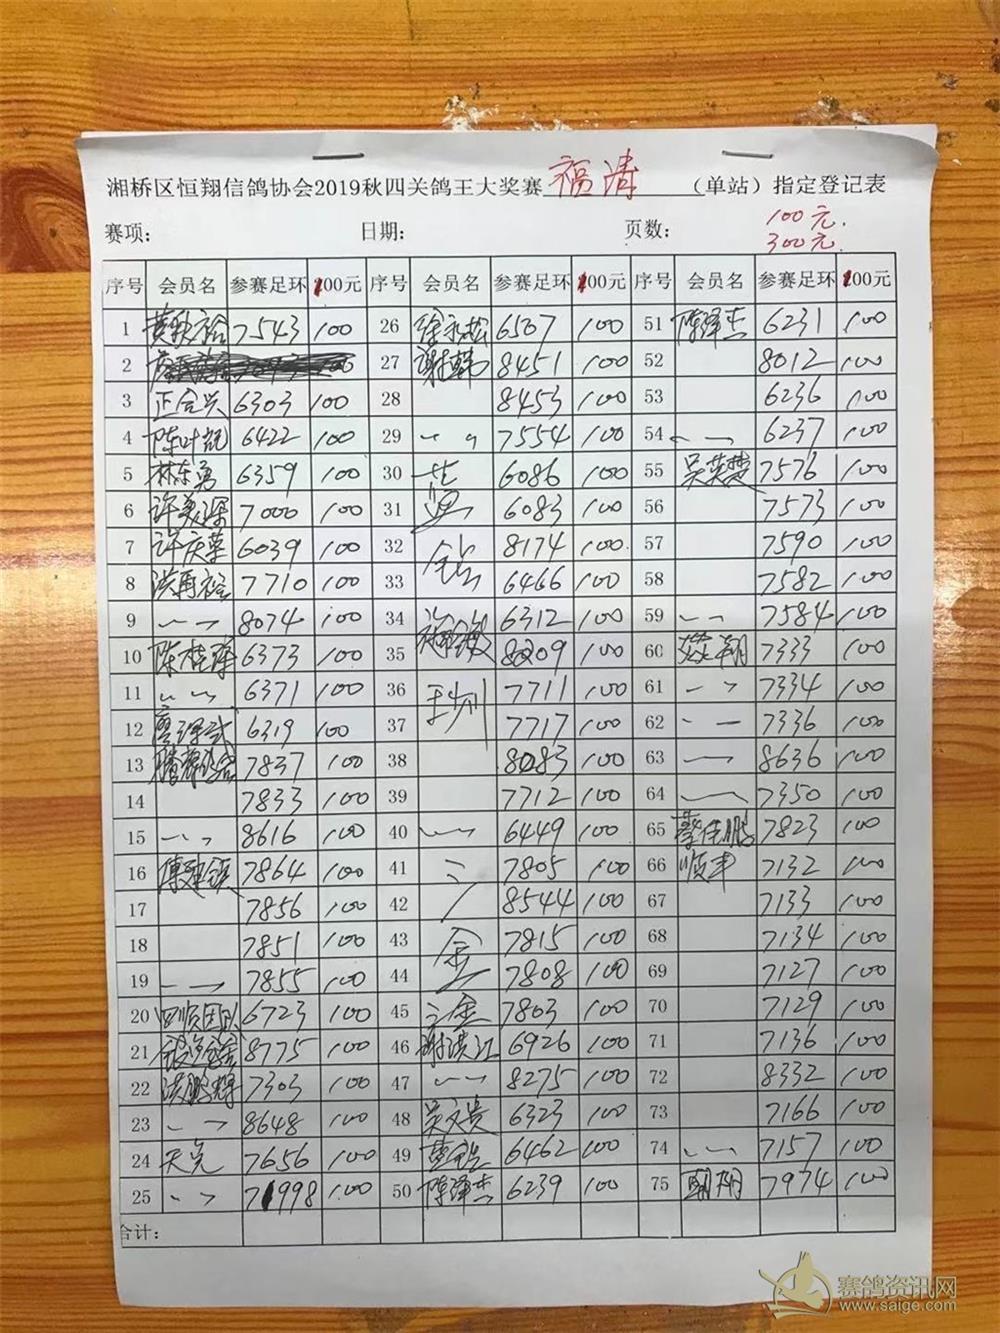 湘桥区恒翔信鸽协会2019秋四关鸽王大奖赛 福清 (单站)指定登记表
赛项: 日期: 页数: 100元.
300元.
序号 会员名 参赛足环 100元 序号 会员名 参赛足环 100元 序号 会员名 参赛足环 100元
1 7543 100 26 徐永松 6507 100 51 陈泽杰 6231 100
2 27 谢韩 8451 100 52 8012 100
3 正合兴 6303 100 28 8453 100 53 6236 100
4 陈叶凯 6422 100 29 〃 7554 100 54 〃 6237 100
5 林东勇 6359 100 30 6086 100 55 吴英楚 7576 100
6 许美深 7000 100 31 6083 100 56 7573 100
7 许庆荣 6039 100 32 8174 100 57 7590 100
8 洪再裕 7710 100 33 6466 100 58 7582 100
9 〃 8074 100 34 6312 100 59 〃 7584 100
10 陈桂 6373 100 35 8209 100 60 翔 7333 100
11 〃 6371 100 36 7711 100 61 〃 7334 100
12 6319 100 37 7717 100 62 〃 7336 100
13 7837 100 38 8083 100 63 〃 8636 100
14 7833 100 39 7712 100 64 〃 7350 100
15 〃 8616 100 40 〃 6449 100 65 蔡佳鹏 7823 100
16 7864 100 41 7805 100 66 顺丰 7132 100
17 7856 100 42 8544 100 67 7133 100
18 7851 100 43 7815 100 68 7134 100
19 〃 7855 100 44 7808 100 69 7127 100
20 四顺团队 6723 100 45 三金 7803 100 70 7129 100
21 8775 100 46 谢洪江 6926 100 71 7136 100
22 洪鹏辉 7303 100 47 〃 8275 100 72 8332 100
23 〃 8648 100 48 吴文贵 6323 100 73 7166 100
24 天亮 7656 100 49 6462 100 74 〃 7157 100
25 〃 71998 100 50 陈泽杰 6239 100 75 朝阳 7974 100
合计:
赛鸽资讯网
www.saige.com